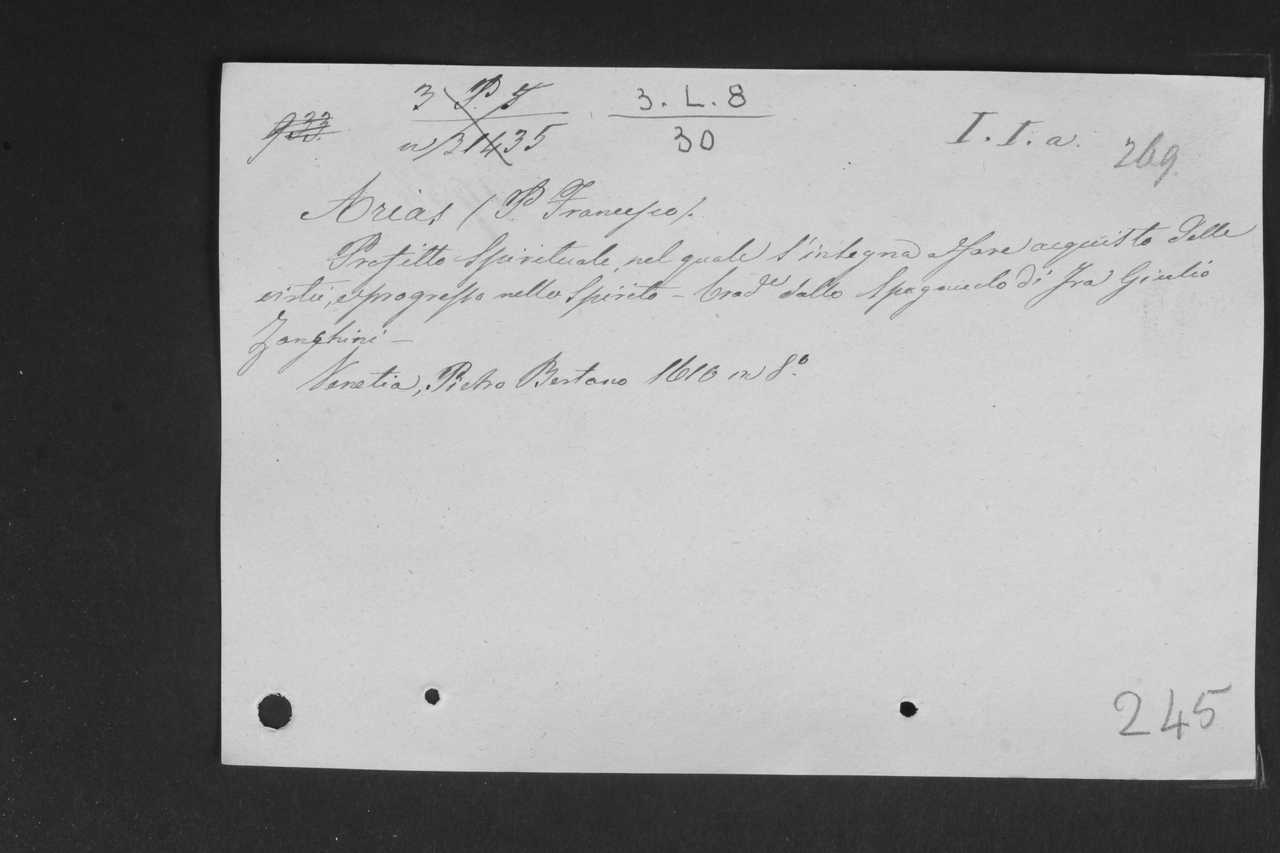 933
3 P. 8
3. L. 8
n 21435
30
I. I. a.
269.
Arias (P. Francesco).
Profitto Spirituale, nel quale s'insegna a fare acquisto delle
virtù, e progresso nello Spirito – trad.e dallo Spagnuolo di Fra Giulio
Zanghini –
Venetia, Pietro Bertano 1610 in 8.º
245